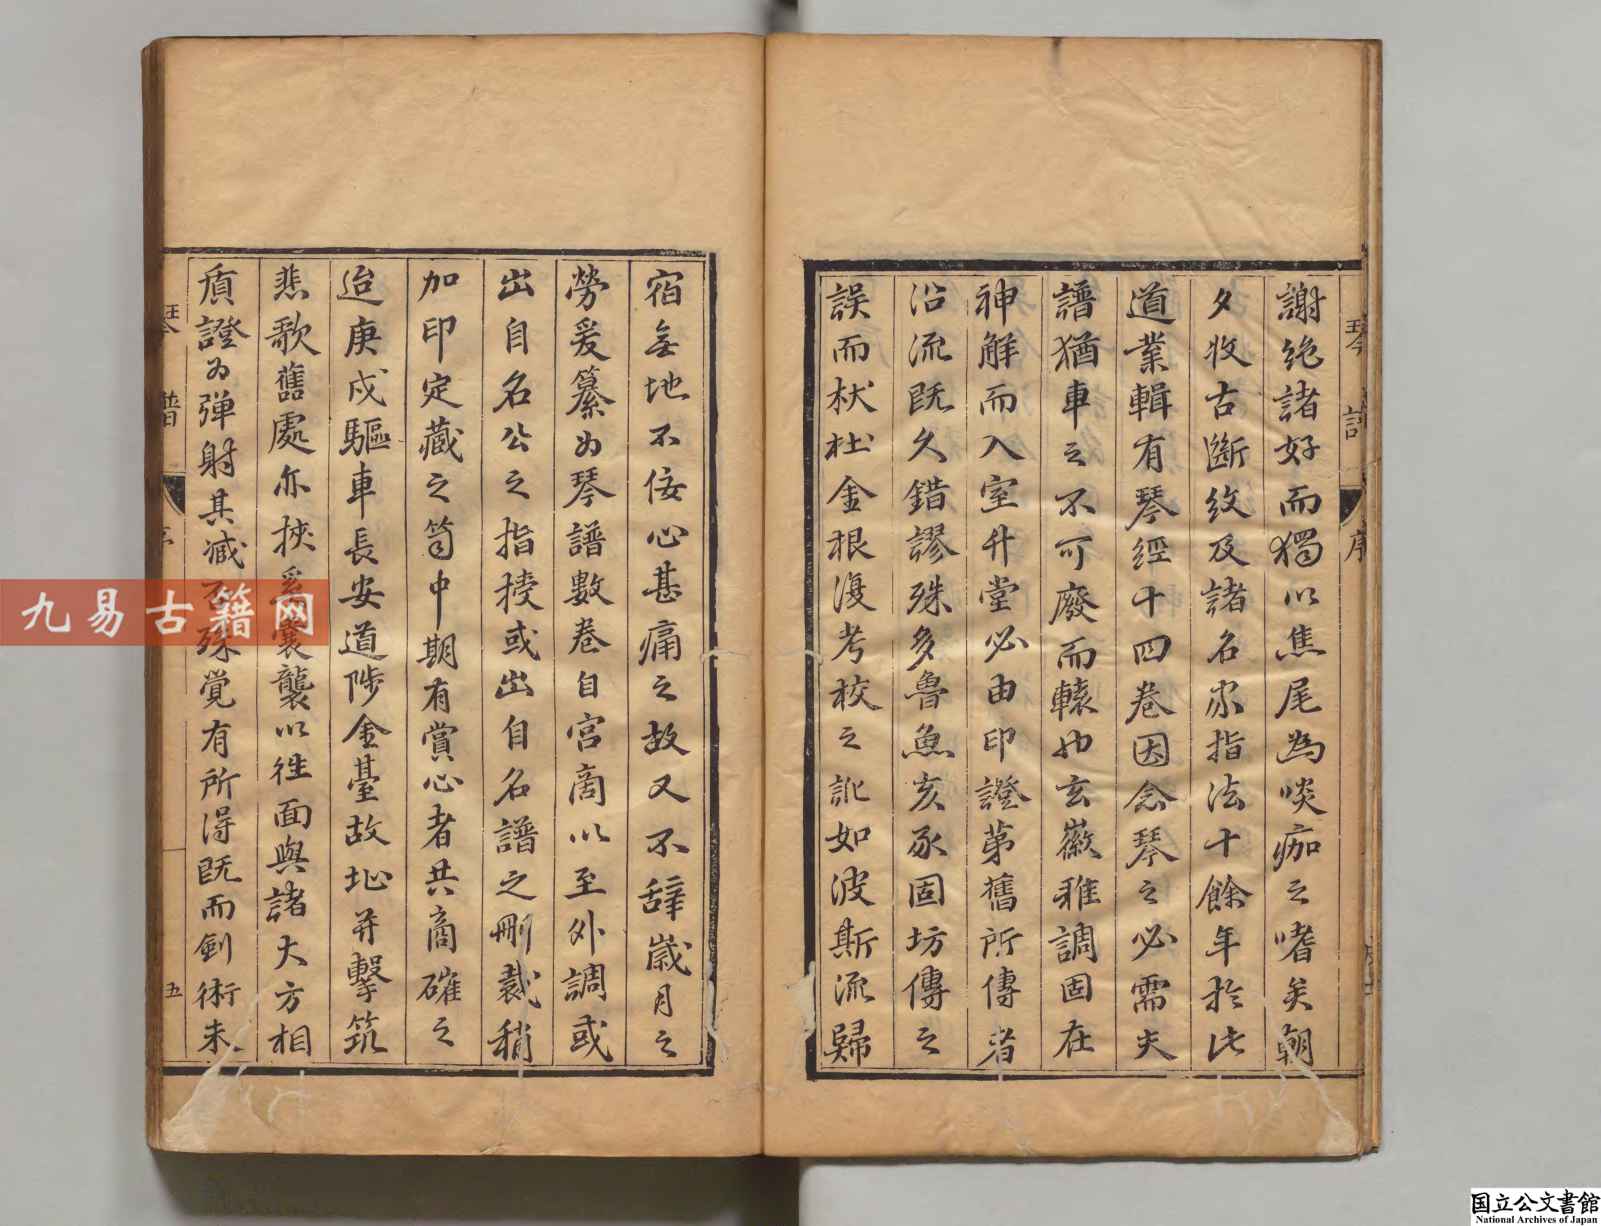 謝絶諸好而獨以焦尾為啖痂之嗜矣朝
夕收古斷紋及諸名家指法十餘年於此
道業輯有琴經十四卷因念琴之必需夫
譜猶車之不可廢而轅也玄徽雅調固在
神解而入室升堂必由印證苐舊所傳者
沿流既久錯謬殊多魯魚亥豕固坊傳之
誤而杕杜金根復考校之訛如波斯流歸
宿無地不佞心甚痛之故又不辭歲月之
勞爰纂為琴譜數卷自宮商以至外調或
出自名公之指授或出自名譜之刪裁稍
加印定藏之笥中期有賞心者共商礭之
迨庚戍驅車長安道陟金臺故址并擊筑
悲歌舊處亦挾奚囊襲以徃面與諸大方相
質證為彈射其減否殊覺有所得既而劍術未
琴譜 序
琴譜 序 五
九易古籍网
国立公文書館
National Archives of Japan